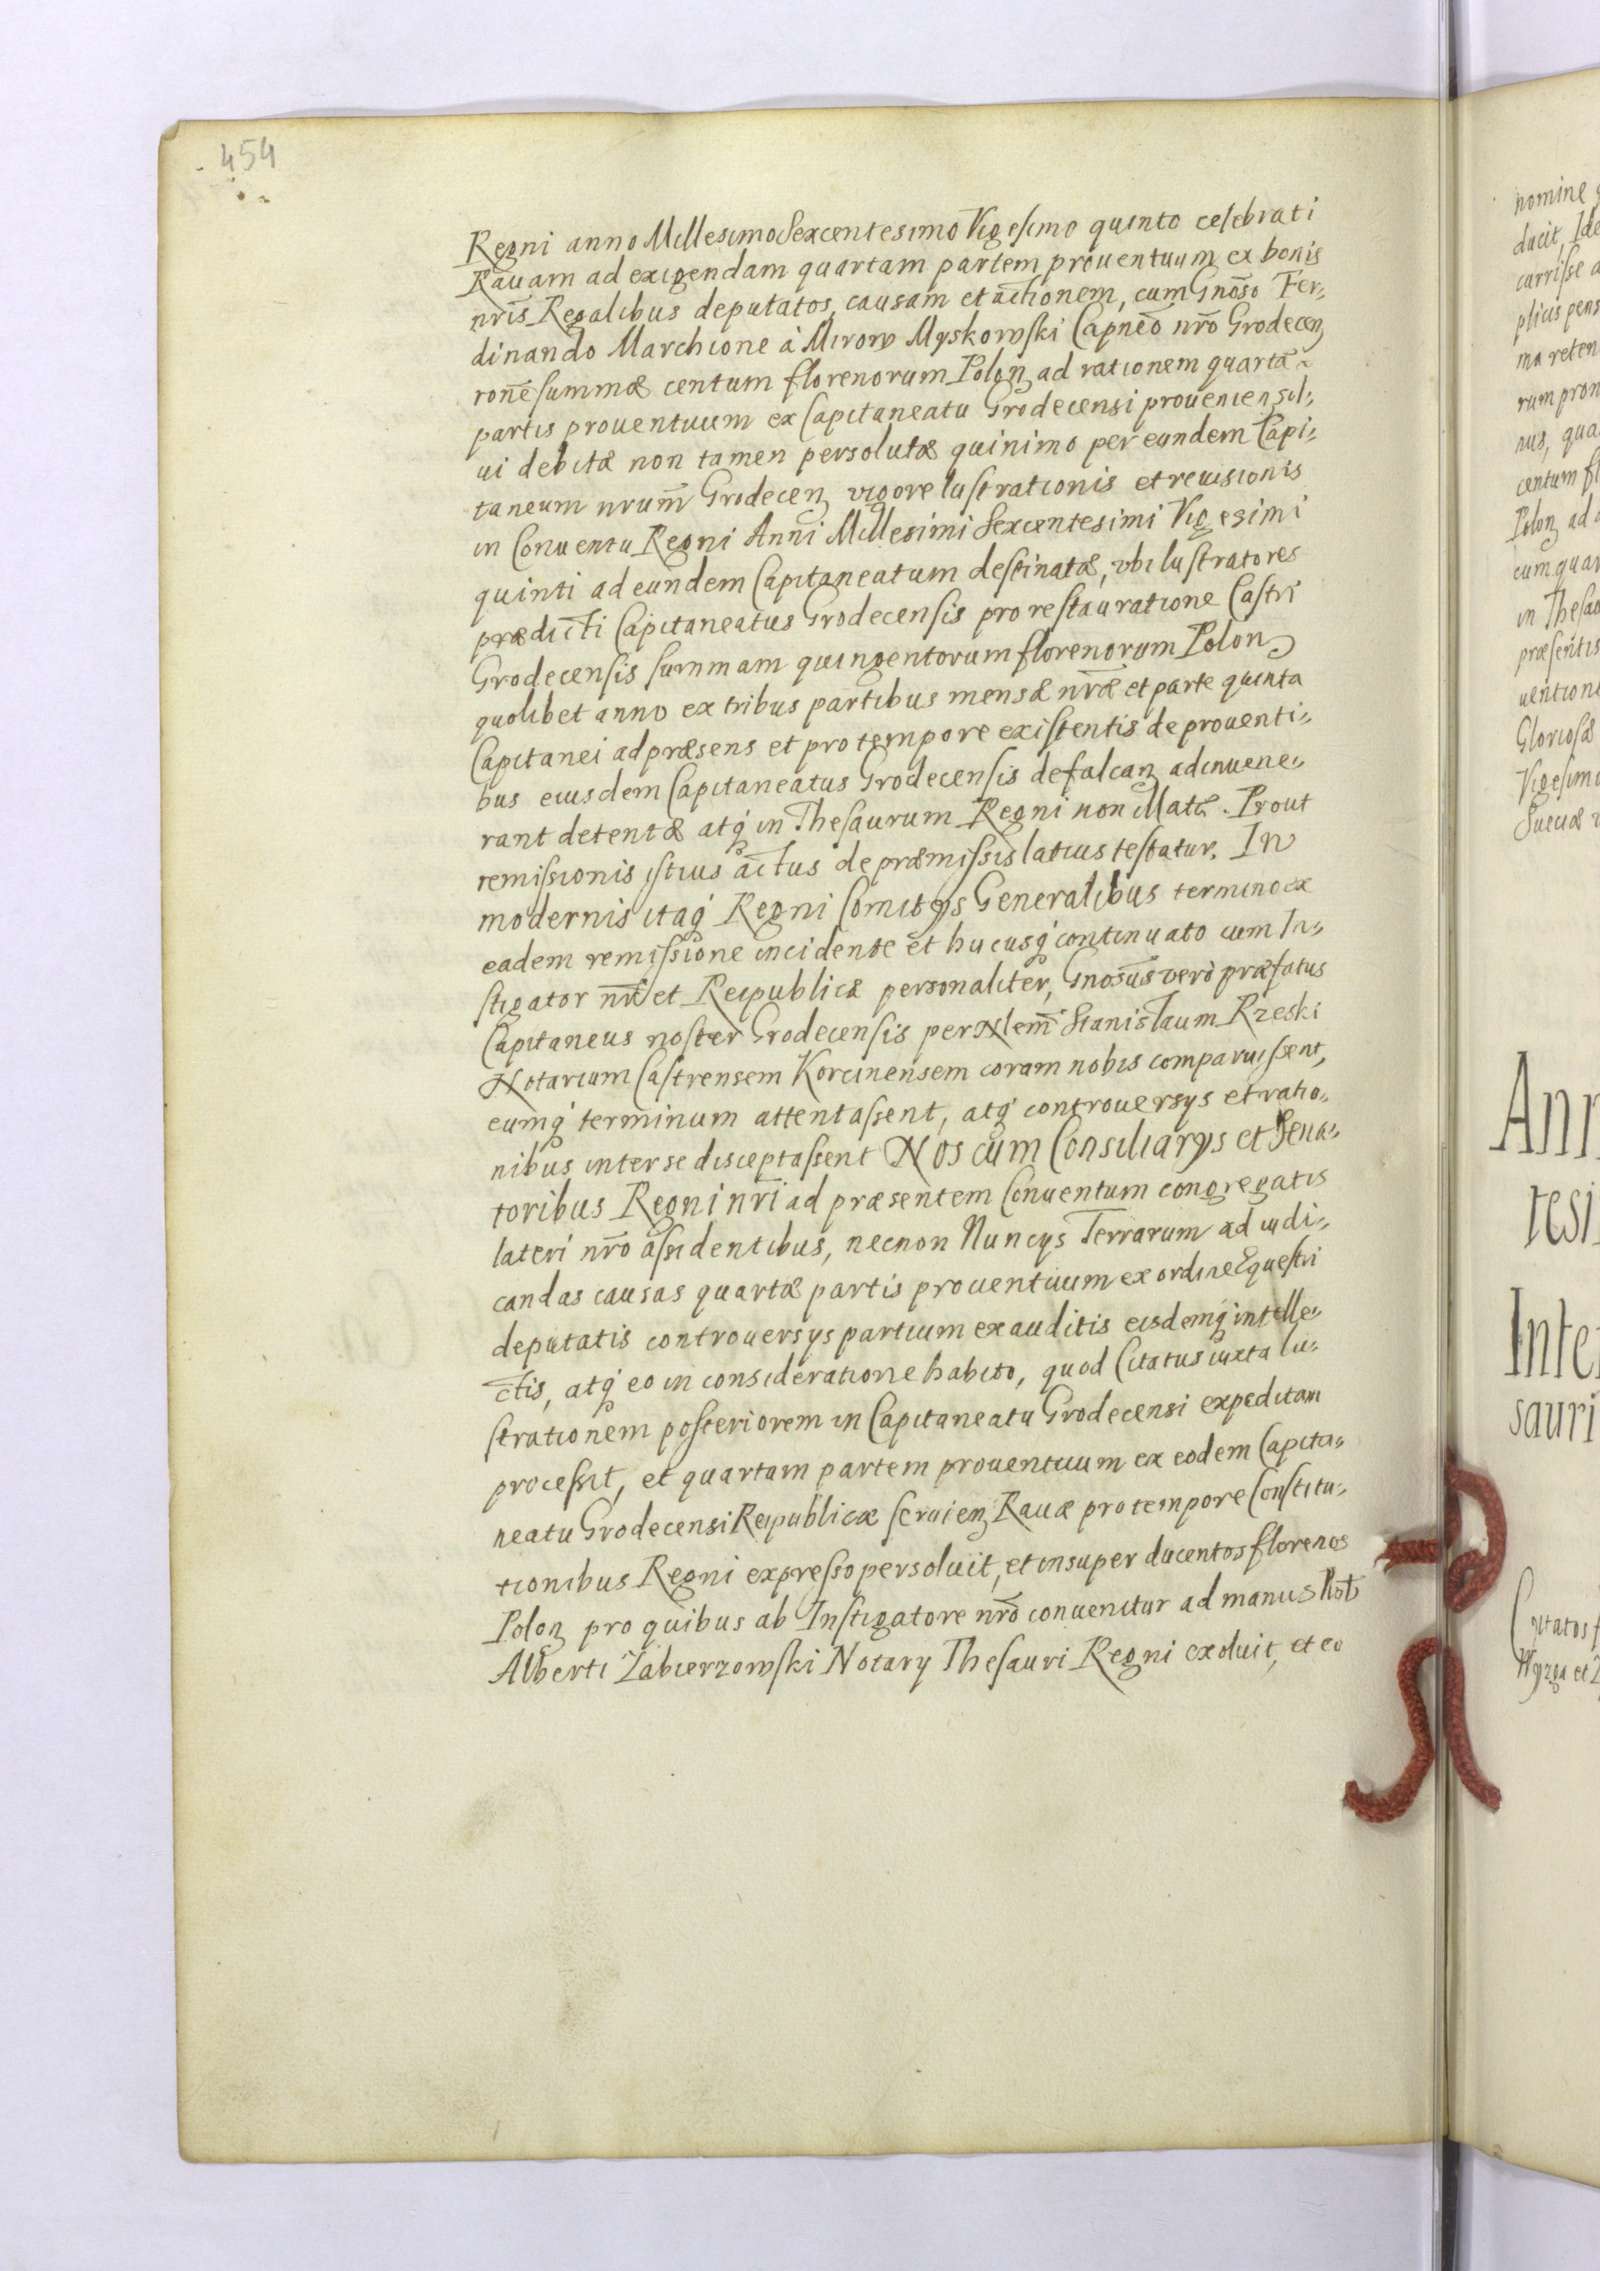 454
Regni anno Millesimo Sexcentesimo Vigesimo quinto celebrati
Ravam ad exigendam quartam partem prouentuum ex bonis
nr̃is Regalibus deputatos, causam et actionem, cum Gnõso Fer„
dinando Marchione à Mirow Myskowski Capneõ nr̃o Grodecen
ronẽ summæ centum florenorum Polon ad rationem quartæ
partis prouentuum ex Capitaneatu Grodecensi prouenien, sil„
ui debitæ non tamen persolutæ quinimo per eundem Capi„
taneum nrum̃ Grodecen vigore lustrationis et reuisionis
in Conuentu Regni Anni Millesimi Sexcentesimi Vigesimi
quinti ad eundem Capitaneatum destinatæ, vbi lustratores
prædicti Capitaneatus Grodecensis pro restauratione Castri
Grodecensis summam quingentorum florenorum Polon
quolibet anno ex tribus partibus mensæ nr̃æ et parte quinta
Capitanei ad præsens et pro tempore existentis de prouenti„
bus eiusdem Capitaneatus Grodecensis defalcan adinuene„
rant detentæ atq́ in Thesaurum Regni non illatæ. Prout
remissionis istius actus de præmissis latius testatur. In
modernis itaq́ Regni Comitijs Generalibus termino ex
eadem remissione incidente et hucusq́ continuato cum In„
stigator nr̃ et Reipublicæ personaliter, Gnosus̃ verò præfatus
Capitaneus noster Grodecensis per Nlem̃ Stanislaum Rzeski
Notarium Castrensem Korcinensem coram nobis comparuissent,
eumq́ terminum attentassent, atq́ controuersys et ratio„
nibus inter se disceptassent Nos cum Consiliarys et Sena„
toribus Regni nr̃i ad præsentem Conuentum congregatis
lateri nr̃o assidentibus, necnon Nuncys Terrarum ad iudi„
candas causas quartæ partis prouentuum ex ordine Equestri
deputatis controuersys partium exauditis eisdemq́ intelle„
ctis, atq́ eo in consideratione habito, quod Citatus iuxta lu„
strationem posteriorem in Capitaneatu Grodecensi expeditam
processit, et quartam partem prouentuum ex eodem Capita„
neatu Grodecensi Reipublicæ seruien Rauæ pro tempore Constitu„
tionibus Regni expresso persoluit, et insuper ducentos florenos
Polon pro quibus ab Instigatore nr̃o conuenitur ad manus
Alberti Zabierzowski Notary Thesauri Regni exoluit, et eo
nomine
ducit,
carrisse
plicis
ma
rum
nus, qua
centum
Polon ad
cum
in
præsentis
Gloriosæ
Sueciæ
sauri